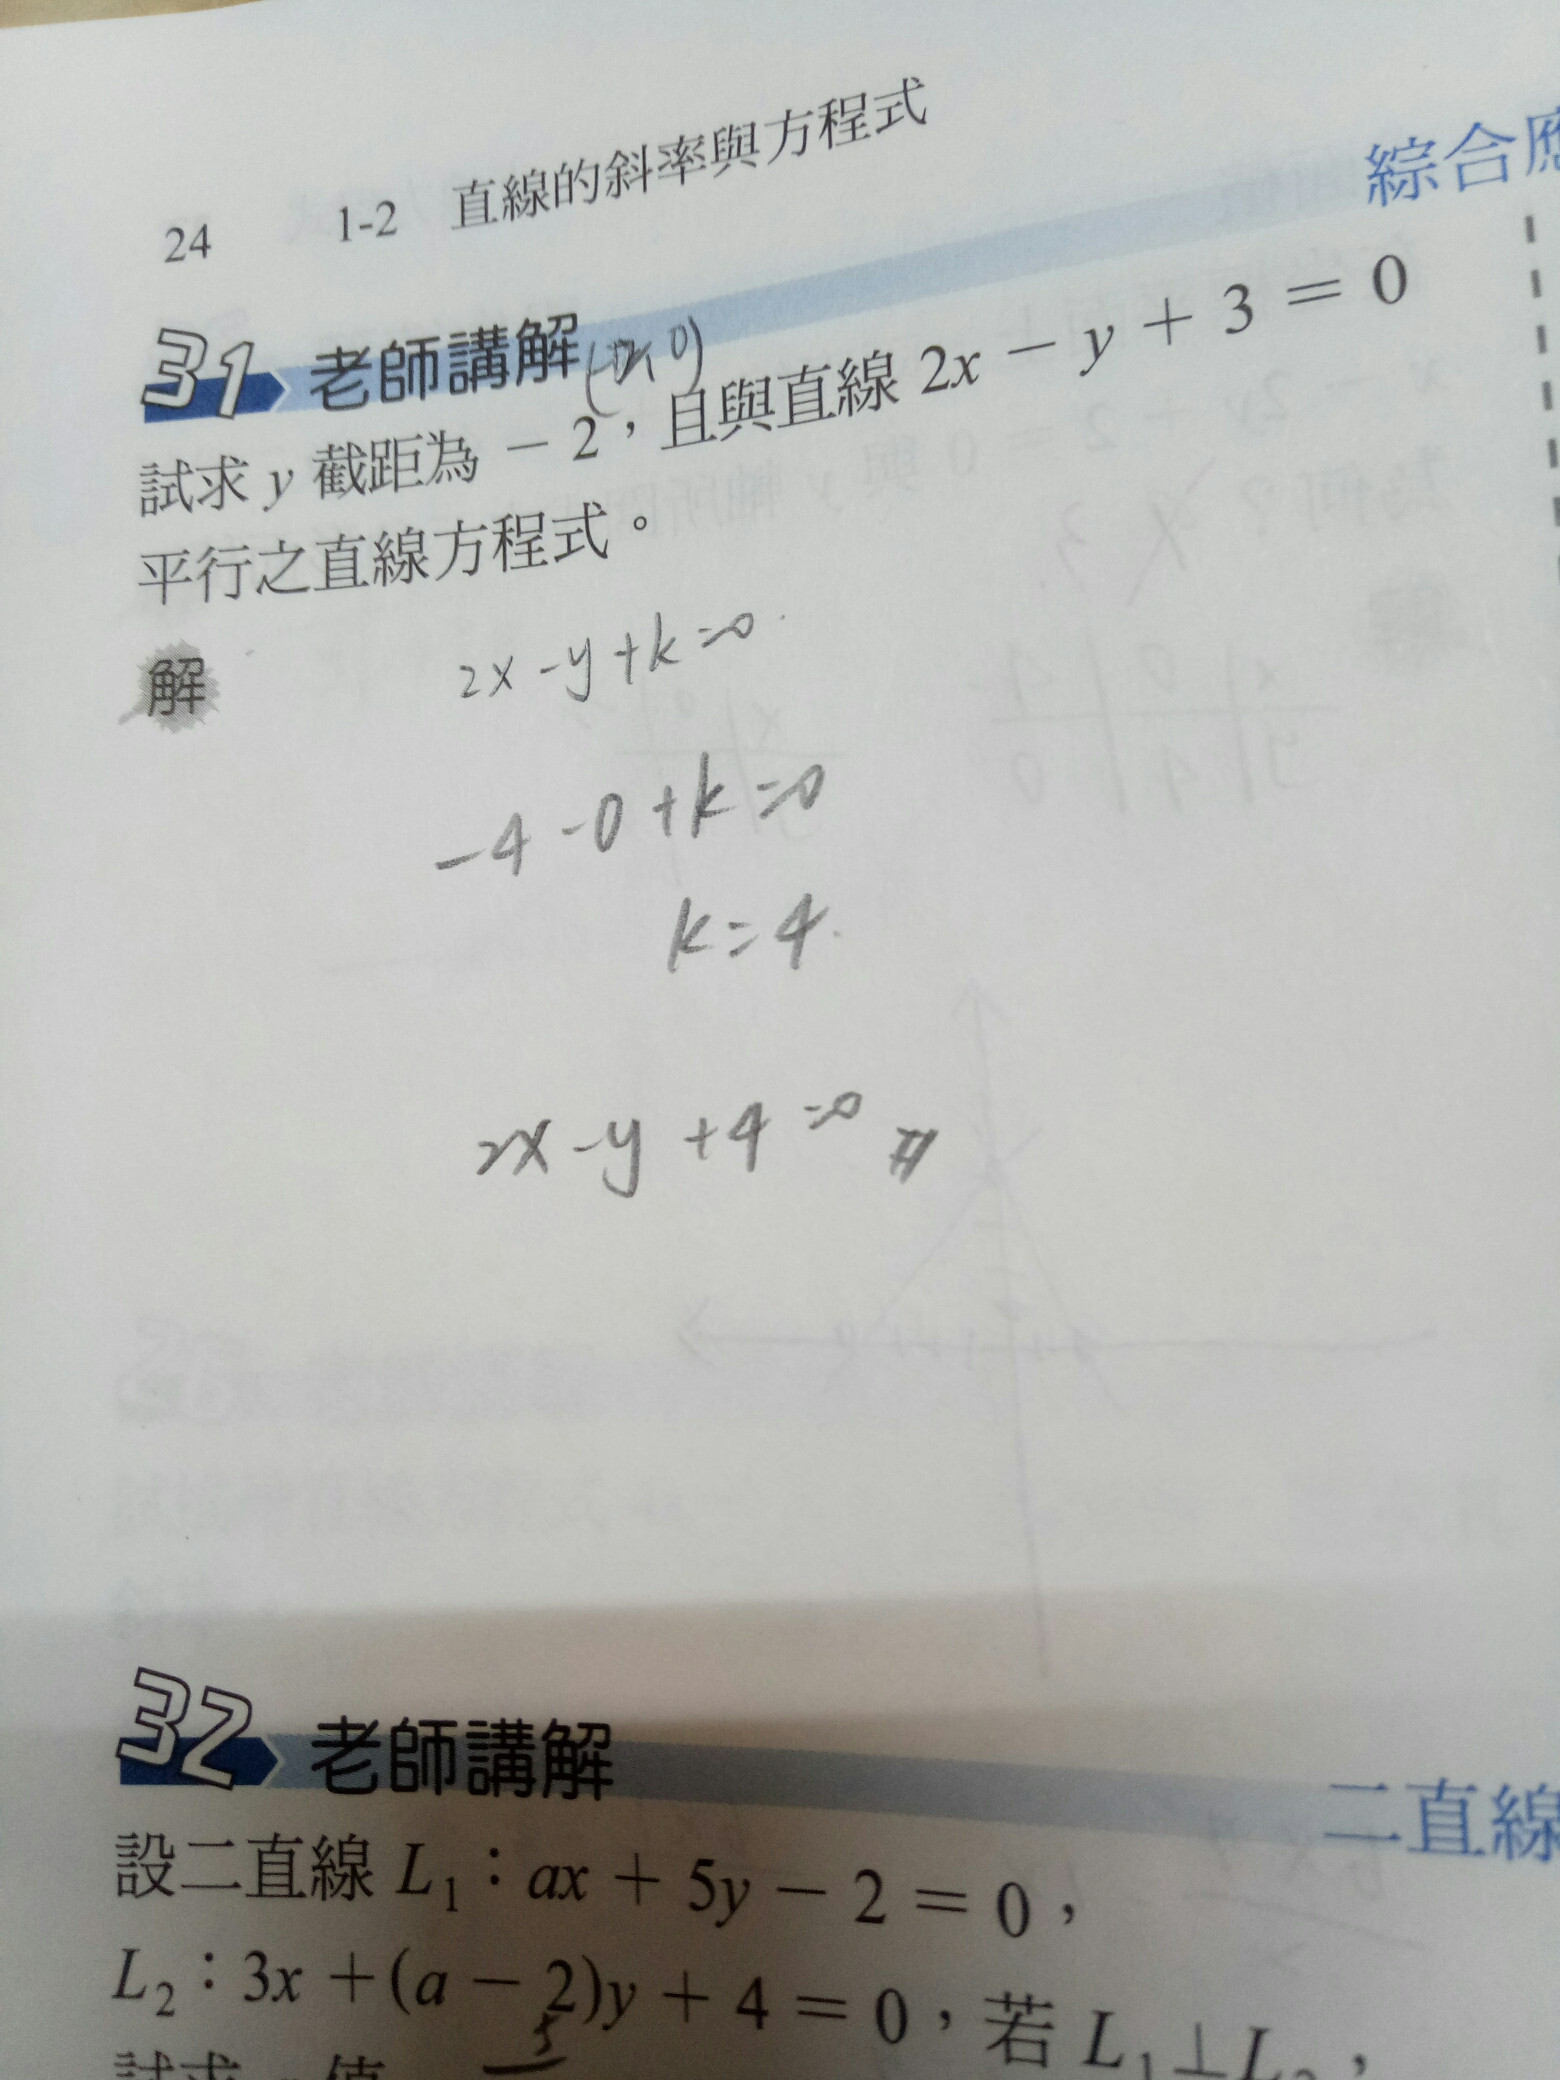 24 1-2 直線的斜率與方程式
綜合應
31 老師講解
試求 y 截距為 −2，且與直線 2x − y + 3 = 0
平行之直線方程式。
解
2x - y + k = 0
-4 - 0 + k = 0
k = 4
2x - y + 4 = 0
32 老師講解
二直線
設二直線 L₁：ax + 5y − 2 = 0，
L₂：3x + (a − 2)y + 4 = 0，若 L₁⊥L₂，
5